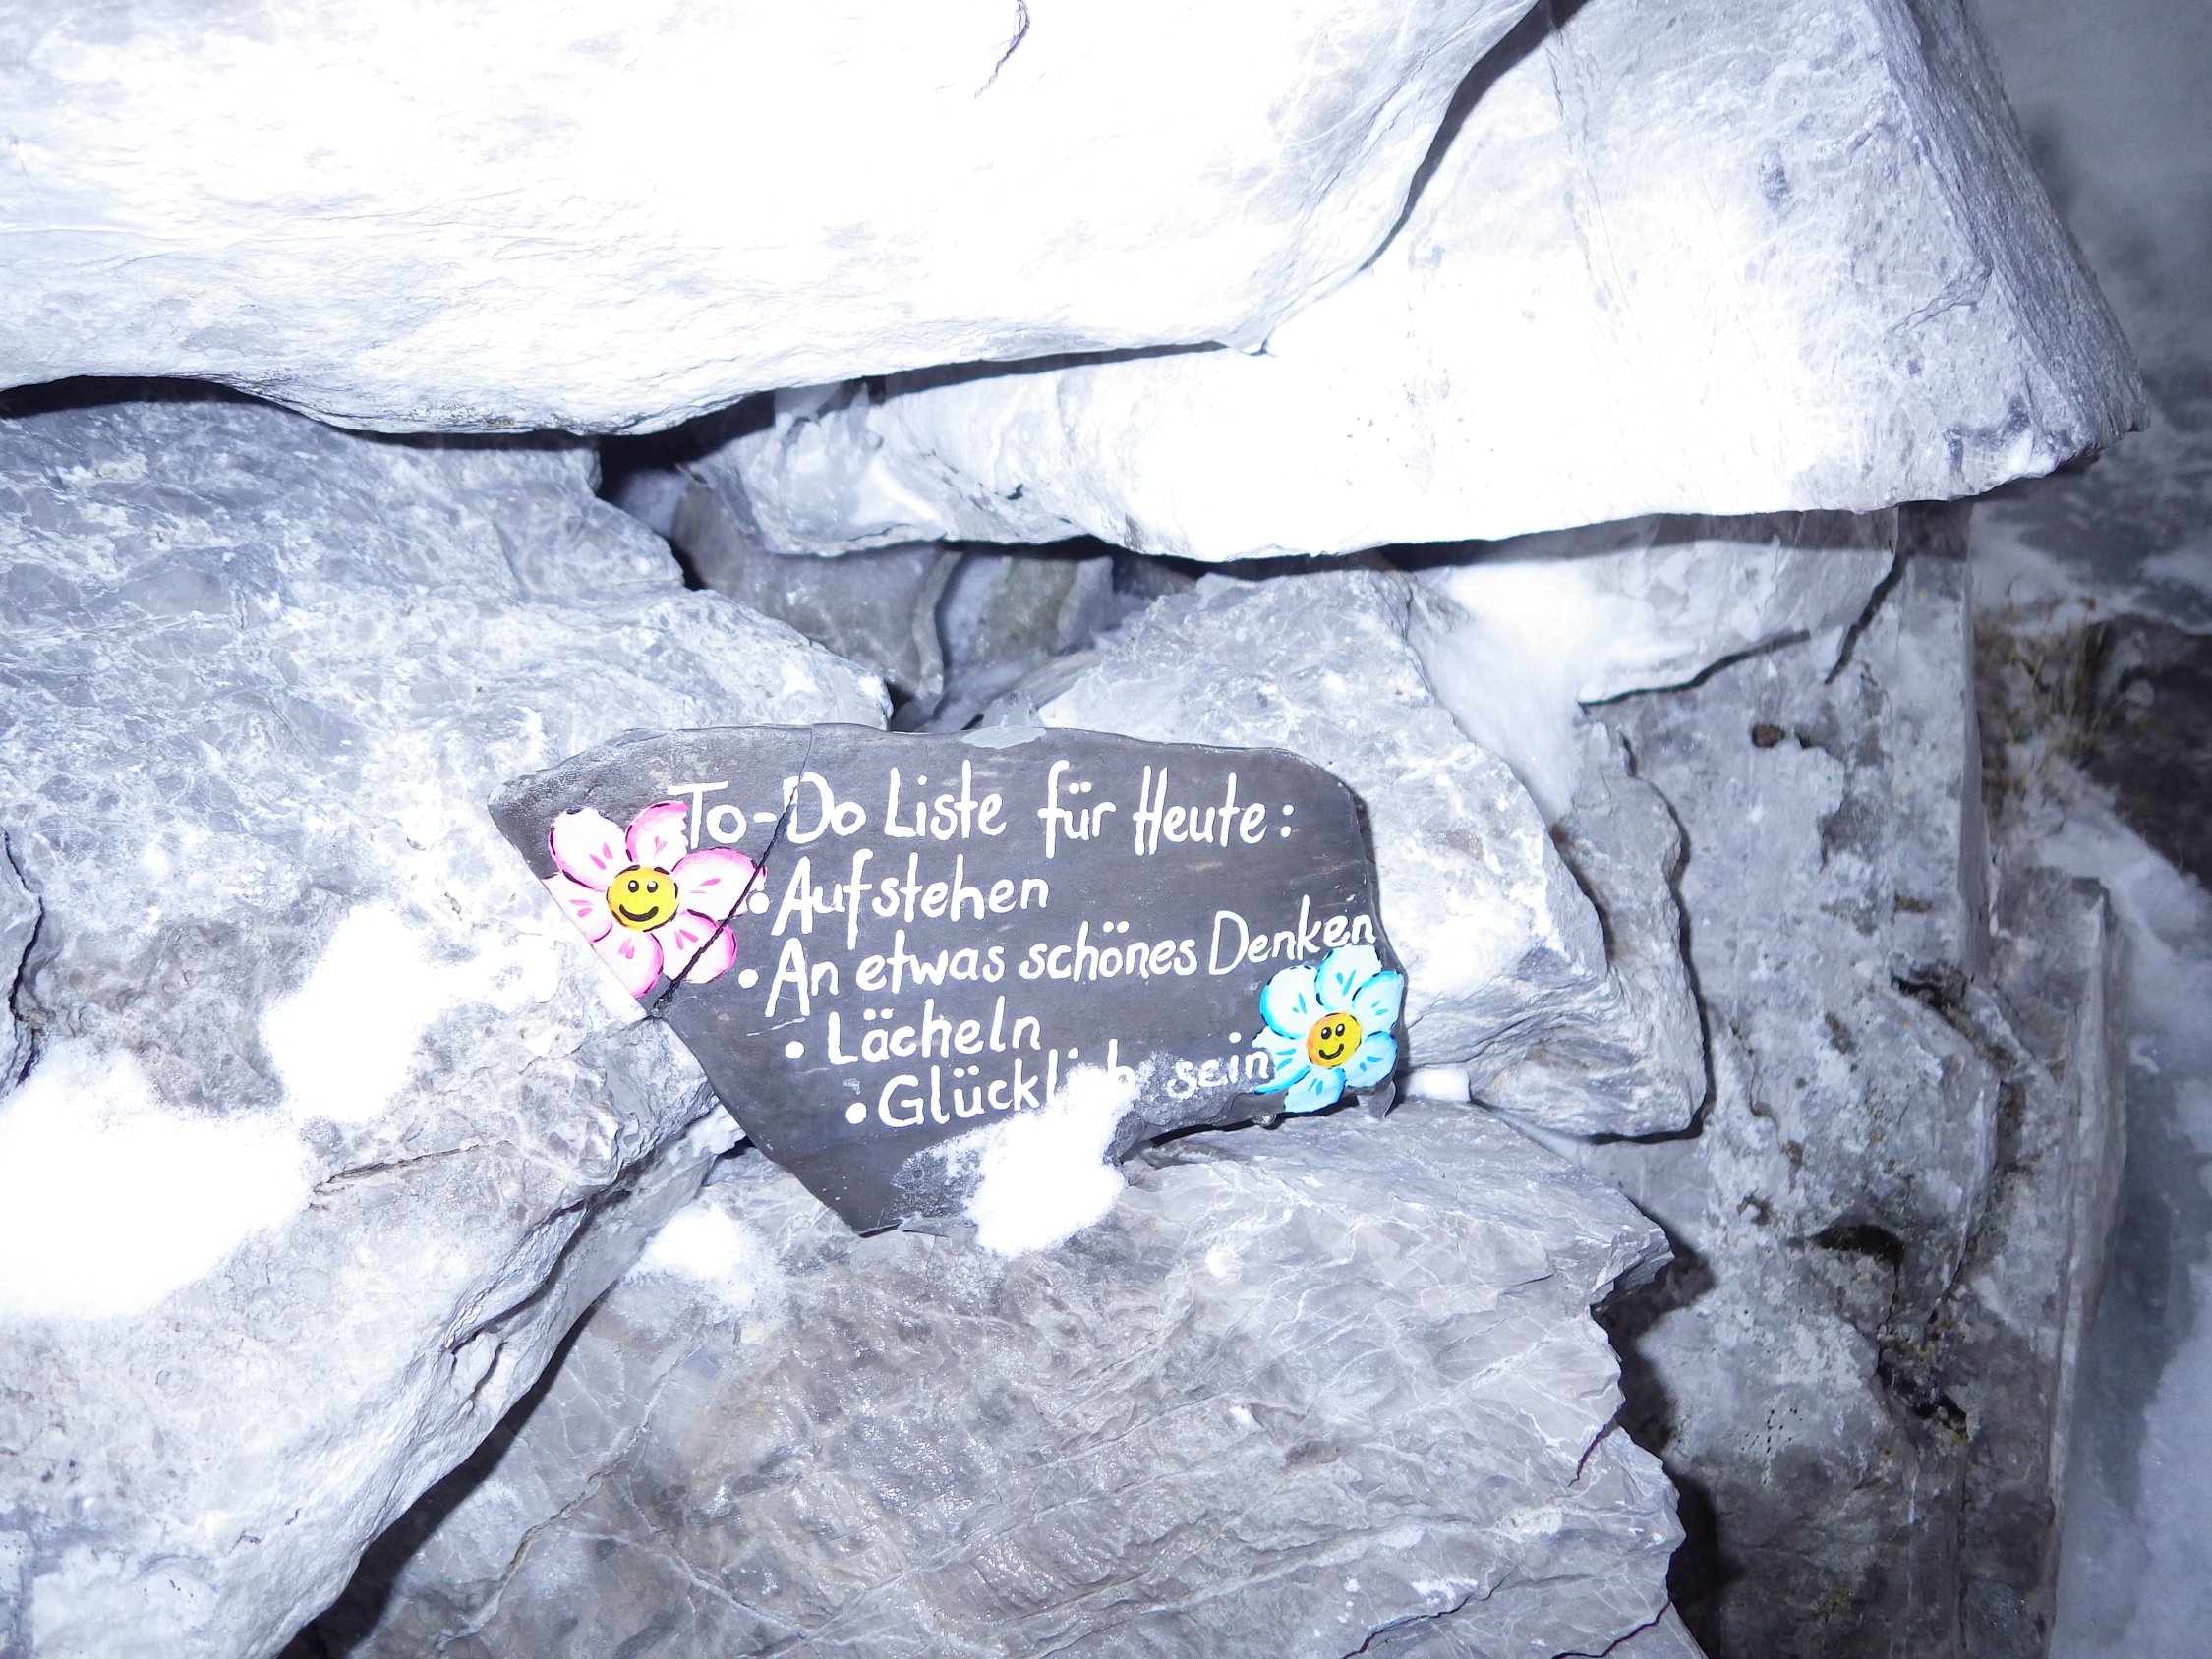 To-Do Liste für Heute:
• Aufstehen
• An etwas schönes Denken
• Lächeln
• Glücklich sein